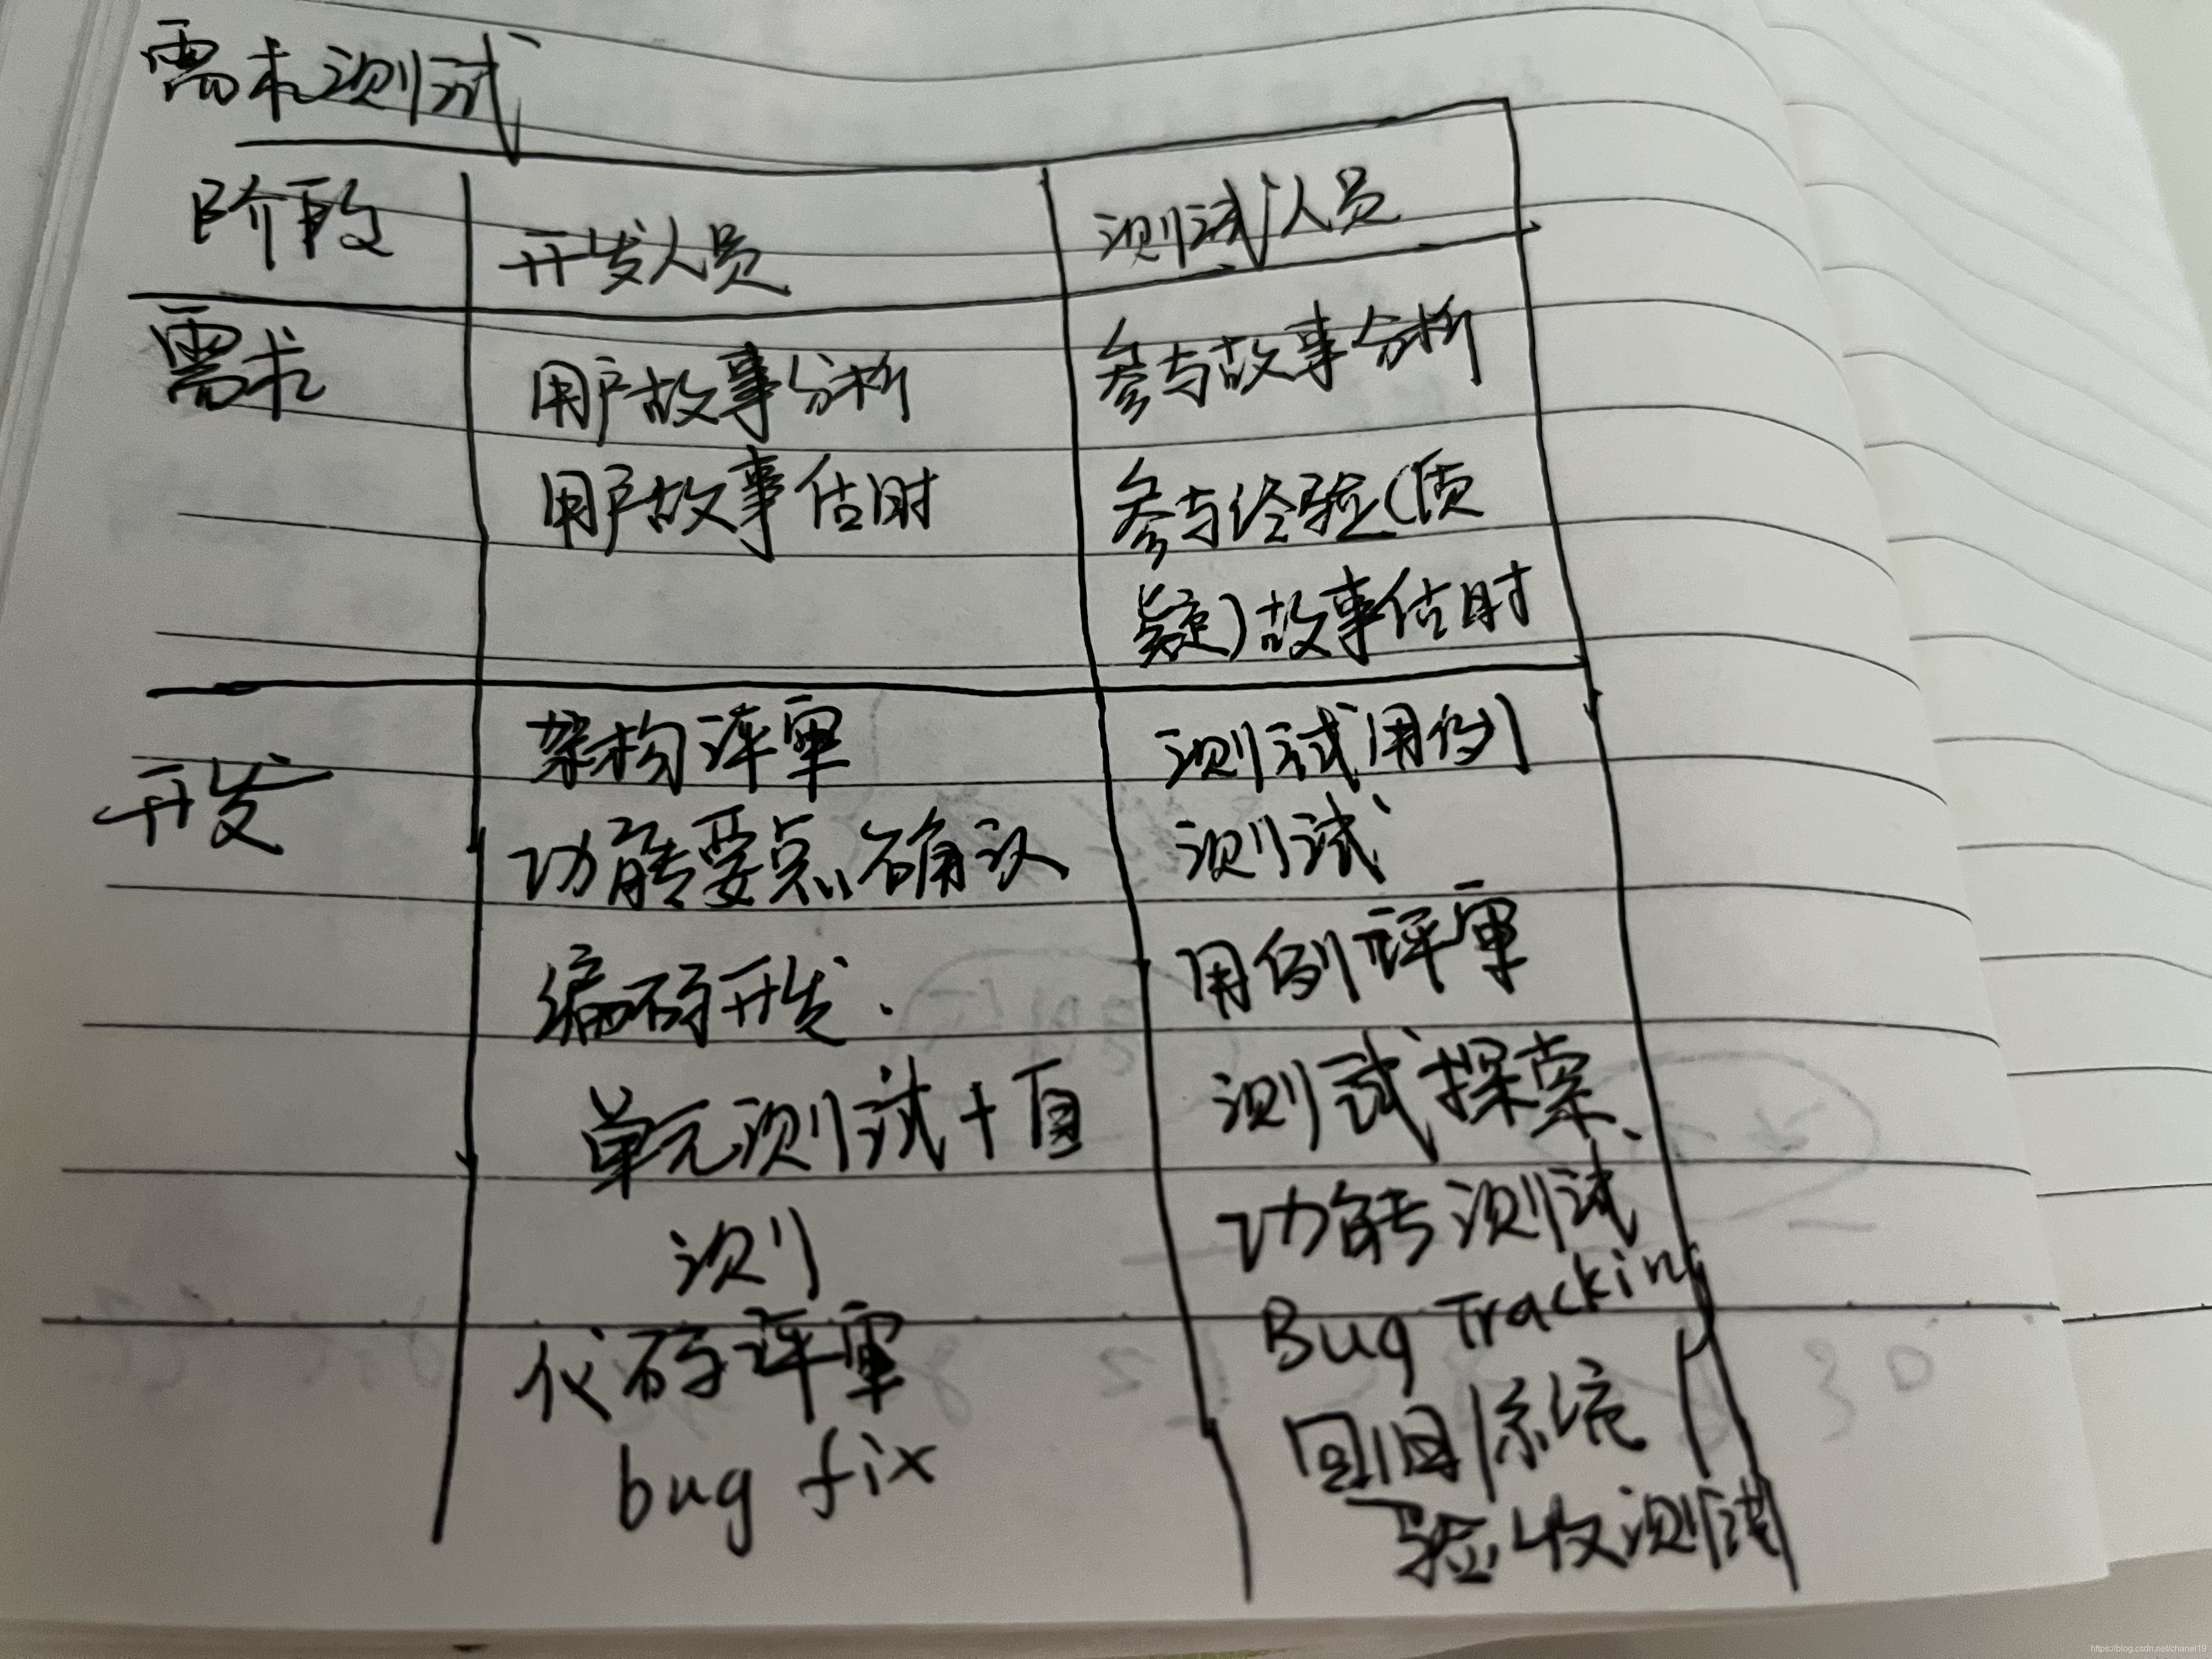 需求测试
阶段 开发人员 测试人员
需求 用户故事分析 参与故事分析
用户故事估时 参与经验(质
疑)故事估时
开发 架构评审 测试用例
功能要点确认 测试
编码开发. 用例评审
单元测试+自 测试探索、
测 功能测试
代码评审 Bug Tracking
bug fix 回归/系统/
验收测试
https://blog.csdn.net/chanel19